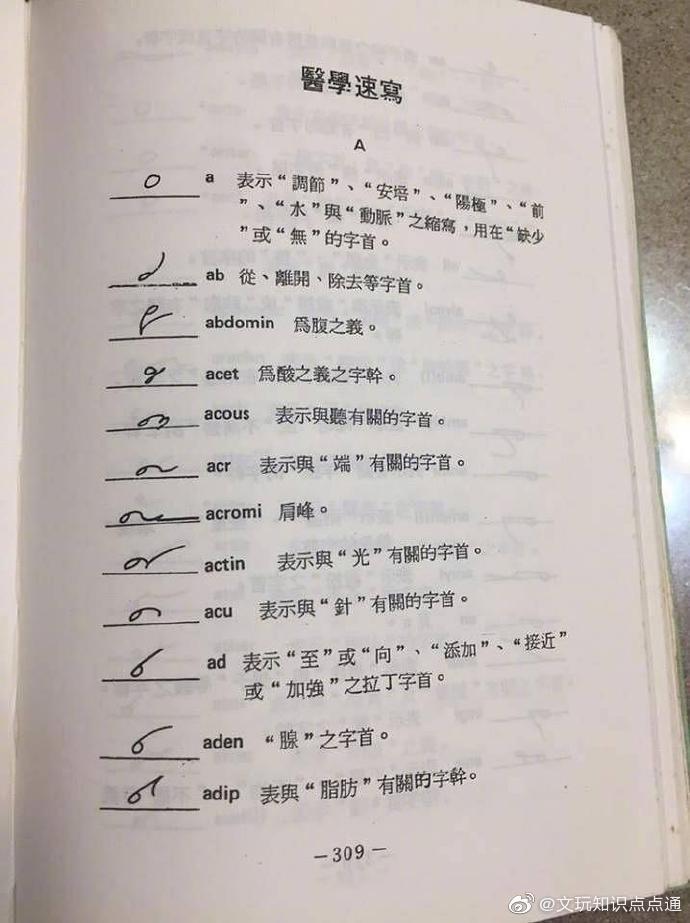 醫學速寫
A
a 表示“調節”、“安培”、“陽極”、“前
”、“水”與“動脈”之縮寫，用在“缺少
”或“無”的字首。
ab 從、離開、除去等字首。
abdomin 爲腹之義。
acet 爲酸之義之字幹。
acous 表示與聽有關的字首。
acr 表示與“端”有關的字首。
acromi 肩峰。
actin 表示與“光”有關的字首。
acu 表示與“針”有關的字首。
ad 表示“至”或“向”、“添加”、“接近”
或“加強”之拉丁字首。
aden “腺”之字首。
adip 表與“脂肪”有關的字幹。
－309－
@文玩知识点点通